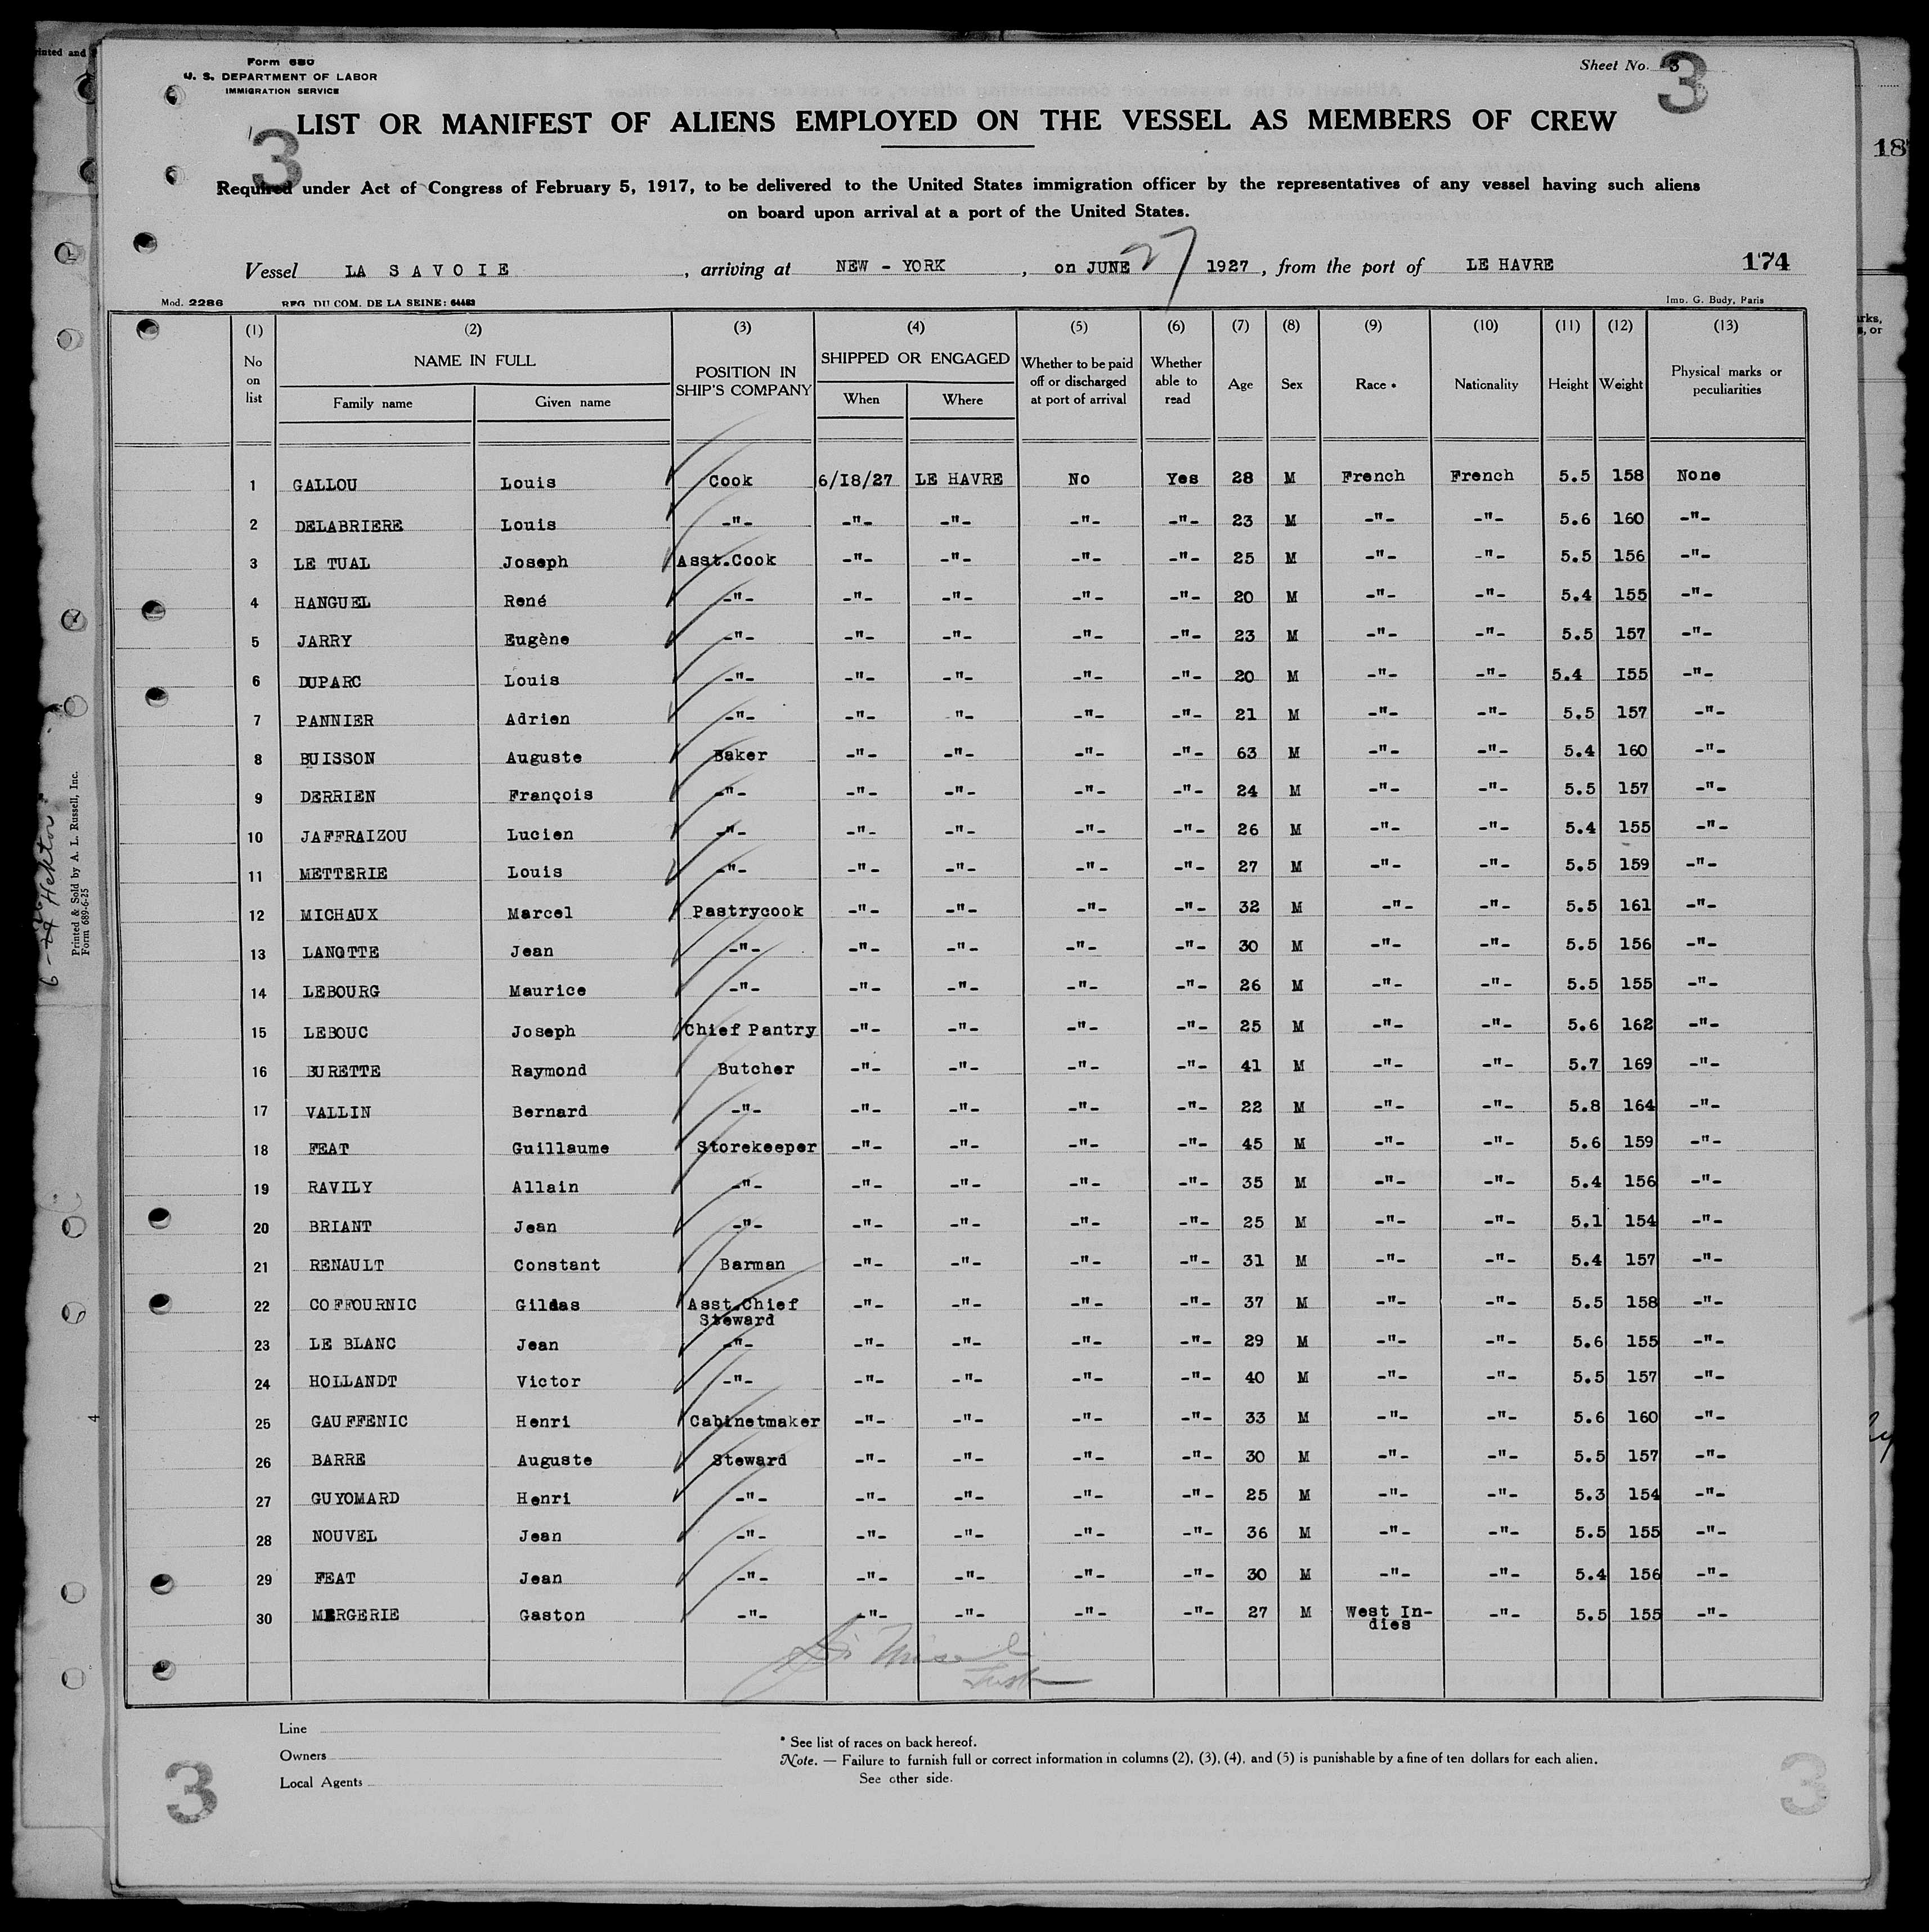 Form 680
U. S. DEPARTMENT OF LABOR
IMMIGRATION SERVICE
Sheet No. 3
3
3
LIST OR MANIFEST OF ALIENS EMPLOYED ON THE VESSEL AS MEMBERS OF CREW
Required under Act of Congress of February 5, 1917, to be delivered to the United States immigration officer by the representatives of any vessel having such aliens
on board upon arrival at a port of the United States.
Vessel LA SAVOIE, arriving at NEW-YORK, on JUNE 27 1927, from the port of LE HAVRE 174
Mod. 2286 REG. DU COM. DE LA SEINE: 64483 Imp. G. Budy, Paris
(1) (2) (3) (4) (5) (6) (7) (8) (9) (10) (11) (12) (13)
No on list NAME IN FULL POSITION IN SHIP'S COMPANY SHIPPED OR ENGAGED Whether to be paid off or discharged at port of arrival Whether able to read Age Sex Race * Nationality Height Weight Physical marks or peculiarities
Family name Given name When Where
1 GALLOU Louis Cook 6/18/27 LE HAVRE No Yes 28 M French French 5.5 158 None
2 DELABRIERE Louis -"- -"- -"- -"- -"- 23 M -"- -"- 5.6 160 -"-
3 LE TUAL Joseph Asst.Cook -"- -"- -"- -"- 25 M -"- -"- 5.5 156 -"-
4 HANGUEL René -"- -"- -"- -"- -"- 20 M -"- -"- 5.4 155 -"-
5 JARRY Eugène -"- -"- -"- -"- -"- 23 M -"- -"- 5.5 157 -"-
6 DUPARC Louis -"- -"- -"- -"- -"- 20 M -"- -"- 5.4 I55 -"-
7 PANNIER Adrien -"- -"- "- -"- -"- 21 M -"- -"- 5.5 157 -"-
8 BUISSON Auguste Baker -"- -"- -"- -"- 63 M -"- -"- 5.4 160 -"-
9 DERRIEN François -"- -"- -"- -"- -"- 24 M -"- -"- 5.5 157 -"-
10 JAFFRAIZOU Lucien -"- -"- -"- -"- -"- 26 M -"- -"- 5.4 155 -"-
11 METTERIE Louis -"- -"- -"- -"- -"- 27 M -"- -"- 5.5 159 -"-
12 MICHAUX Marcel Pastrycook -"- -"- -"- -"- 32 M -"- -"- 5.5 161 -"-
13 LANOTTE Jean -"- -"- -"- -"- -"- 30 M -"- -"- 5.5 156 -"-
14 LEBOURG Maurice -"- -"- -"- -"- -"- 26 M -"- -"- 5.5 155 -"-
15 LEBOUC Joseph Chief Pantry -"- -"- -"- -"- 25 M -"- -"- 5.6 162 -"-
16 BURETTE Raymond Butcher -"- -"- -"- -"- 41 M -"- -"- 5.7 169 -"-
17 VALLIN Bernard -"- -"- -"- -"- -"- 22 M -"- -"- 5.8 164 -"-
18 FEAT Guillaume Storekeeper -"- -"- -"- -"- 45 M -"- -"- 5.6 159 -"-
19 RAVILY Allain -"- -"- -"- -"- -"- 35 M -"- -"- 5.4 156 -"-
20 BRIANT Jean -"- -"- -"- -"- -"- 25 M -"- -"- 5.1 154 -"-
21 RENAULT Constant Barman -"- -"- -"- -"- 31 M -"- -"- 5.4 157 -"-
22 COFFOURNIC Gildas Asst.Chief Steward -"- -"- -"- -"- 37 M -"- -"- 5.5 158 -"-
23 LE BLANC Jean -"- -"- -"- -"- -"- 29 M -"- -"- 5.6 155 -"-
24 HOLLANDT Victor -"- -"- -"- -"- -"- 40 M -"- -"- 5.5 157 -"-
25 GAUFFENIC Henri Cabinetmaker -"- -"- -"- -"- 33 M -"- -"- 5.6 160 -"-
26 BARRE Auguste Steward -"- -"- -"- -"- 30 M -"- -"- 5.5 157 -"-
27 GUYOMARD Henri -"- -"- -"- -"- -"- 25 M -"- -"- 5.3 154 -"-
28 NOUVEL Jean -"- -"- -"- -"- -"- 36 M -"- -"- 5.5 155 -"-
29 FEAT Jean -"- -"- -"- -"- -"- 30 M -"- -"- 5.4 156 -"-
30 MERGERIE Gaston -"- -"- -"- -"- -"- 27 M West In-dies -"- 5.5 155 -"-
Line
Owners
Local Agents
* See list of races on back hereof.
Note. — Failure to furnish full or correct information in columns (2), (3), (4), and (5) is punishable by a fine of ten dollars for each alien.
See other side.
3
3
Printed & Sold by A. L. Russell, Inc.
Form 689-6-25
4